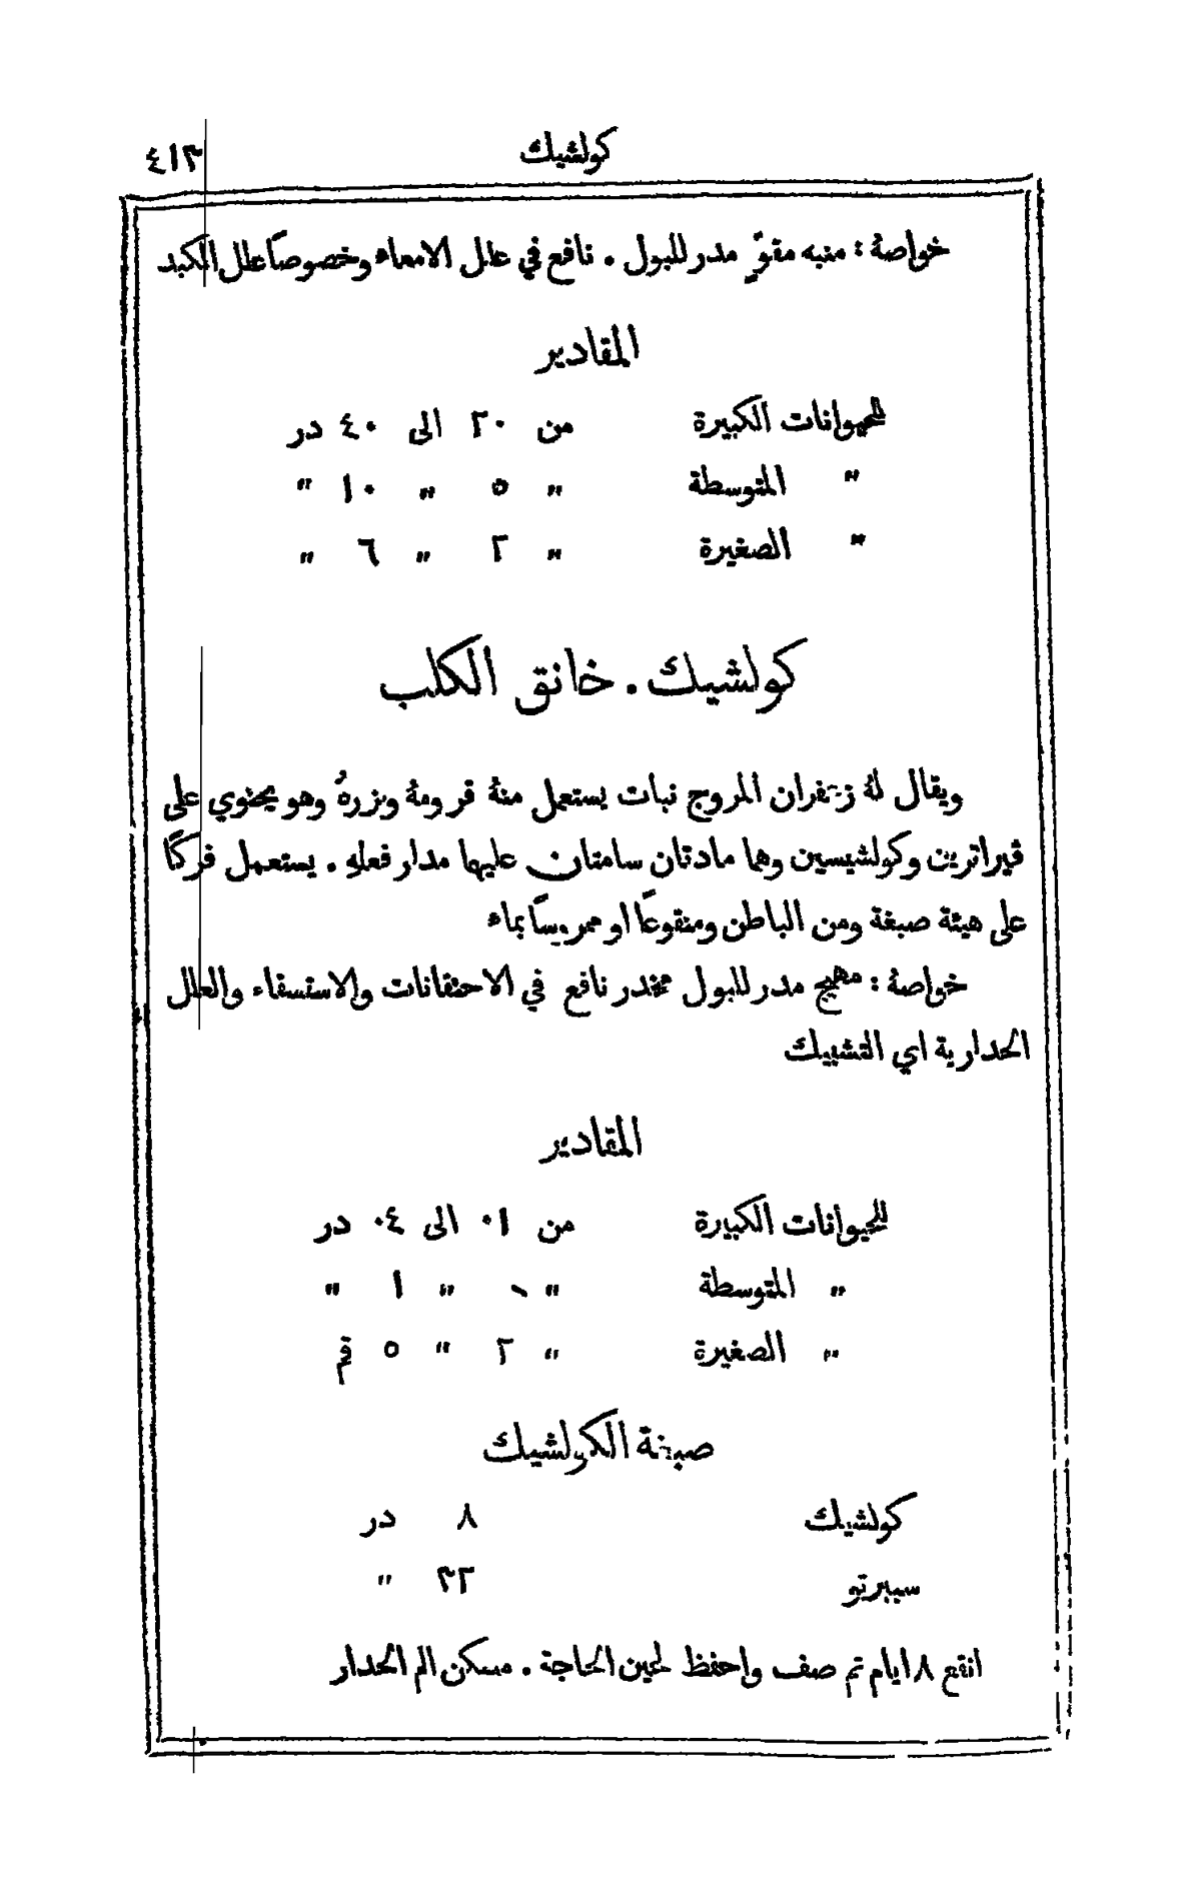 كولشيك ٤١٣
خواصهُ : منبه مقوٍّ مدر للبول . نافع في علل الامعاء وخصوصاً علل الكبد
المقادير
للحيوانات الكبيرة من ٢٠ الى ٤٠ در
" المتوسطة " ٥ " ١٠ "
" الصغيرة " ٢ " ٦ "
كولشيك . خانق الكلب
ويقال لهُ زعفران المروج نبات يستعمل منهُ قرومهُ وبزرهُ وهو يحتوي على
ڤيراترين وكولشيسين وهما مادتان سامتان عليها مدار فعلهِ . يستعمل فركاً
على هيئة صبغة ومن الباطن ومنقوعاً او ممروساً بماء
خواصهُ : مهيج مدر للبول مخدر نافع في الاحتقانات والاستسقاء والعلل
الحدارية اي التشبيك
المقادير
للحيوانات الكبيرة من ٠١ الى ٠٤ در
" المتوسطة " " ١ "
" الصغيرة " ٢ " ٥ قم
صبغة الكولشيك
كولشيك ٨ در
سبيرتو ٣٢ "
انقع ٨ ايام ثم صف واحفظ لحين الحاجة . مسكن الم الحدار